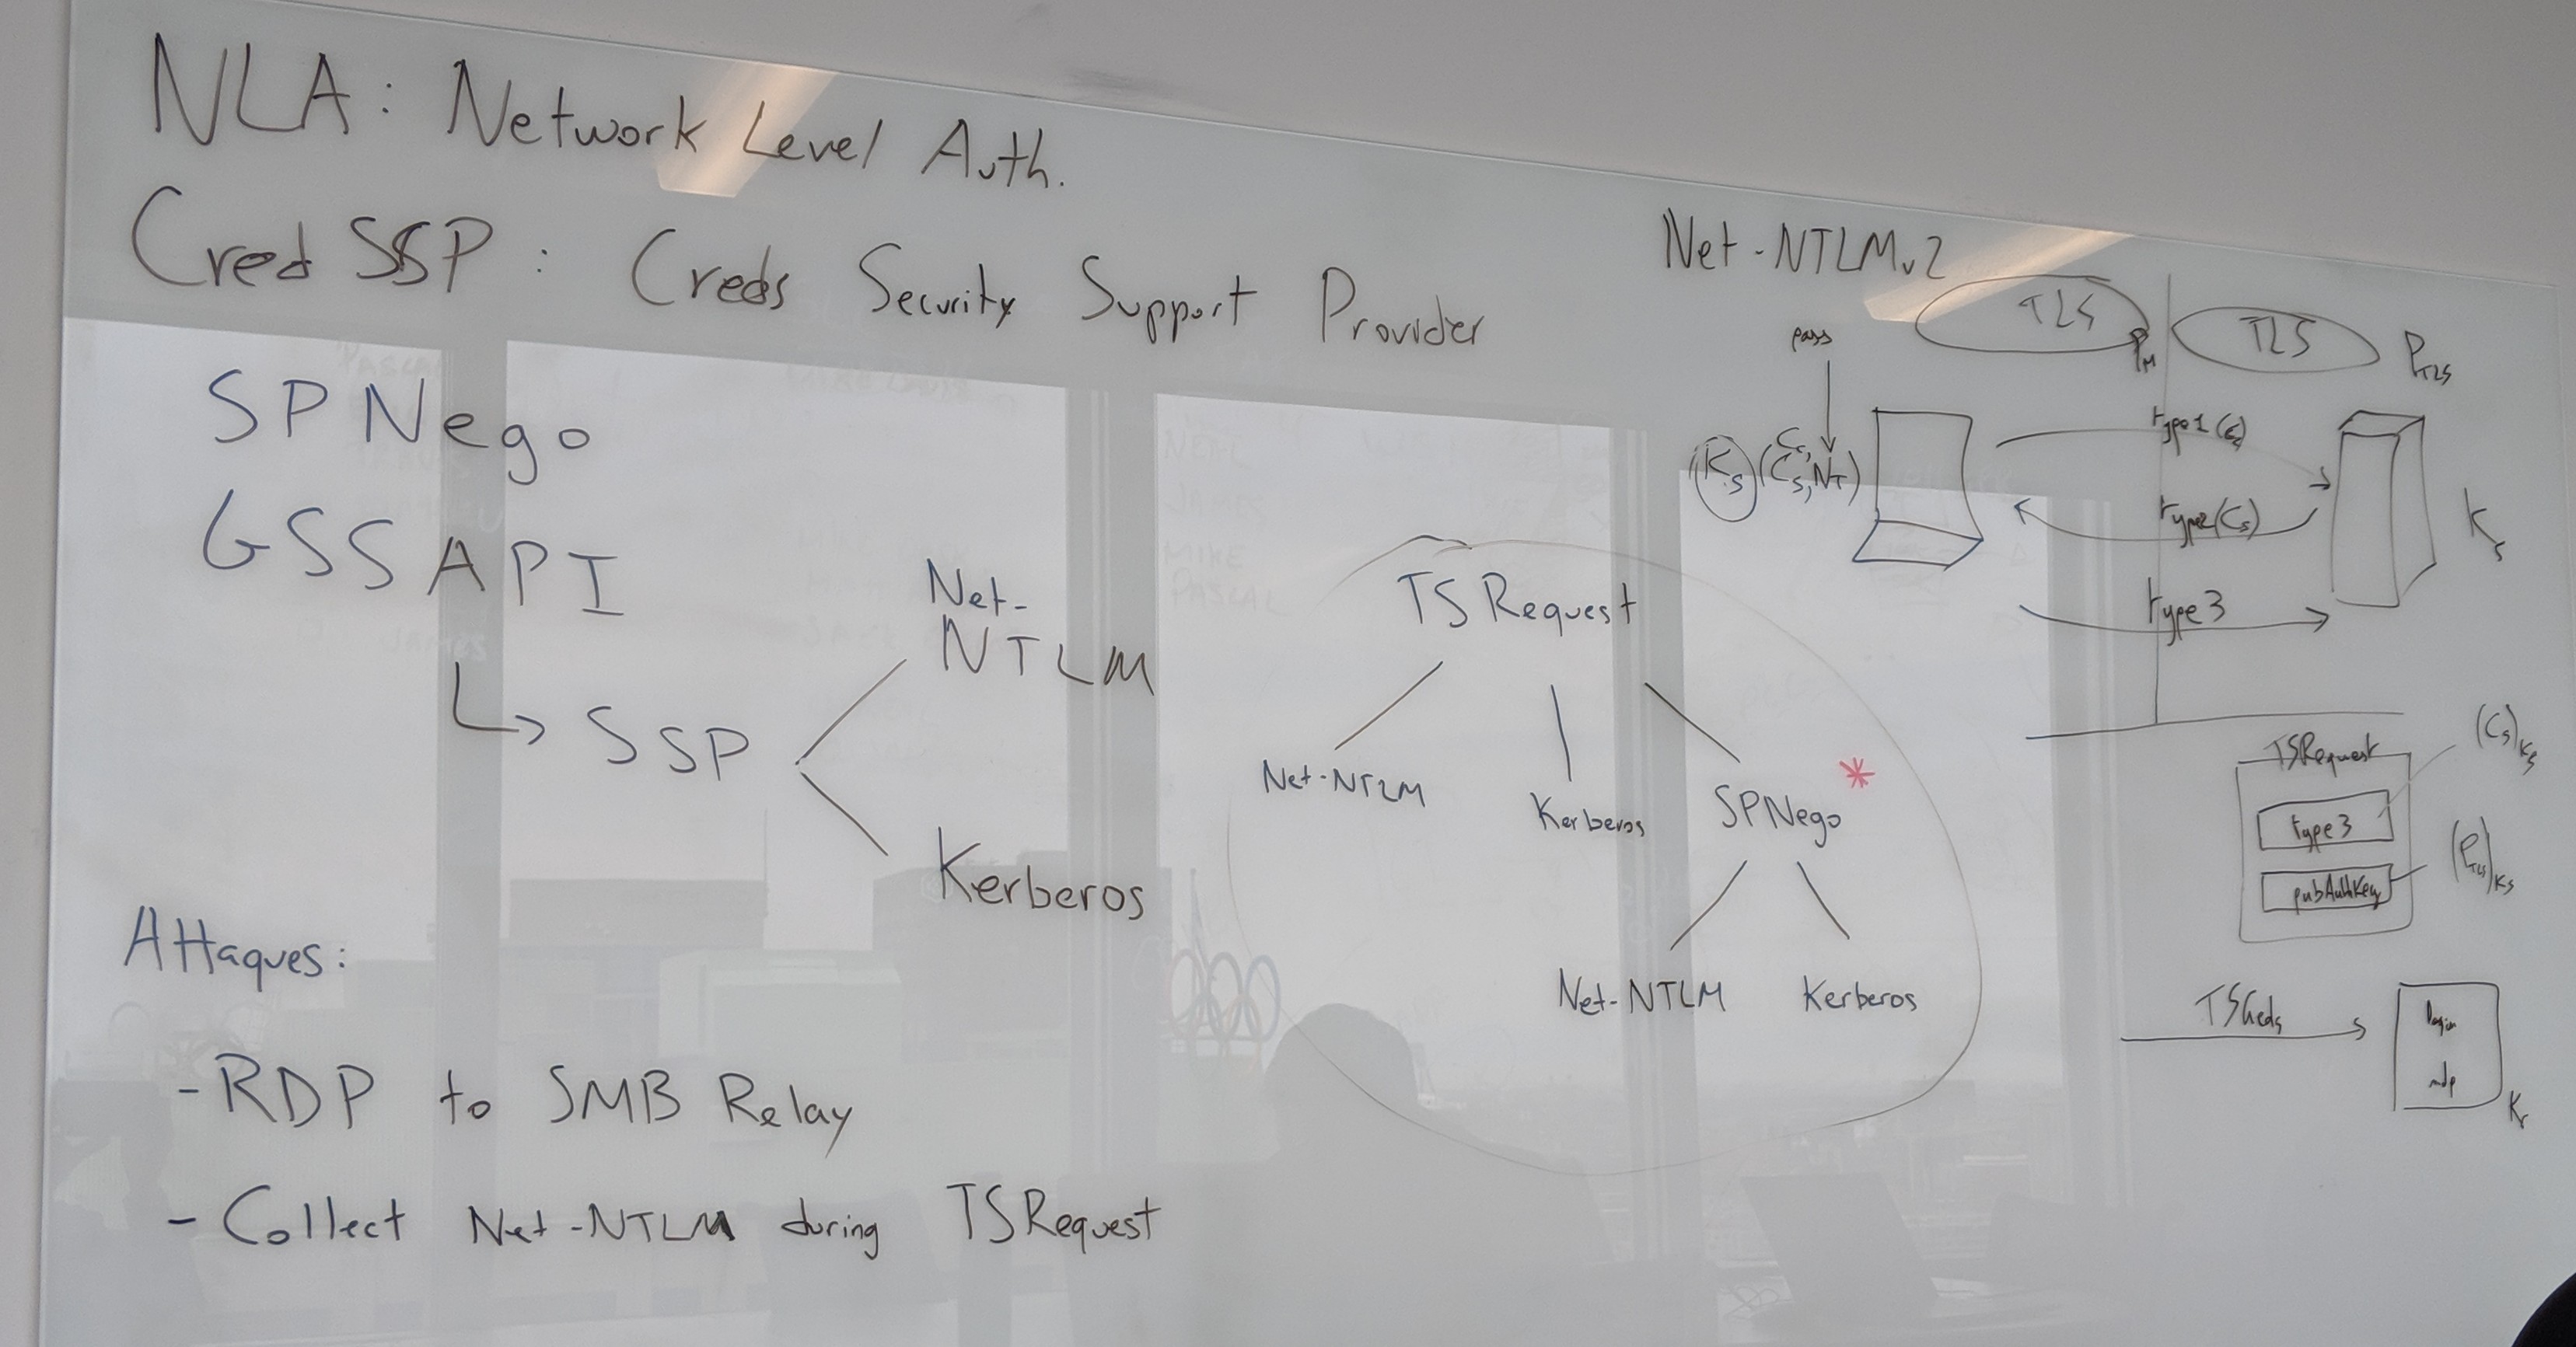 NLA: Network Level Auth.
CredSSP: Creds Security Support Provider
SPNego
GSSAPI
SSP
Net-
NTLM
Kerberos
Attaques:
- RDP to SMB Relay
- Collect Net-NTLM during TSRequest
TSRequest
Net-NTLM
Kerberos
SPNego *
Net-NTLM
Kerberos
Net-NTLMv2
TLS
PM
TLS
PTLS
pass
Ks (Cc, Cs, NT)
type1 (Cc)
type2 (Cs)
Ks
type3
TSRequest
type3
pubAuthKey
(Cs)Ks
(PTLS)Ks
TSCreds
login
mdp